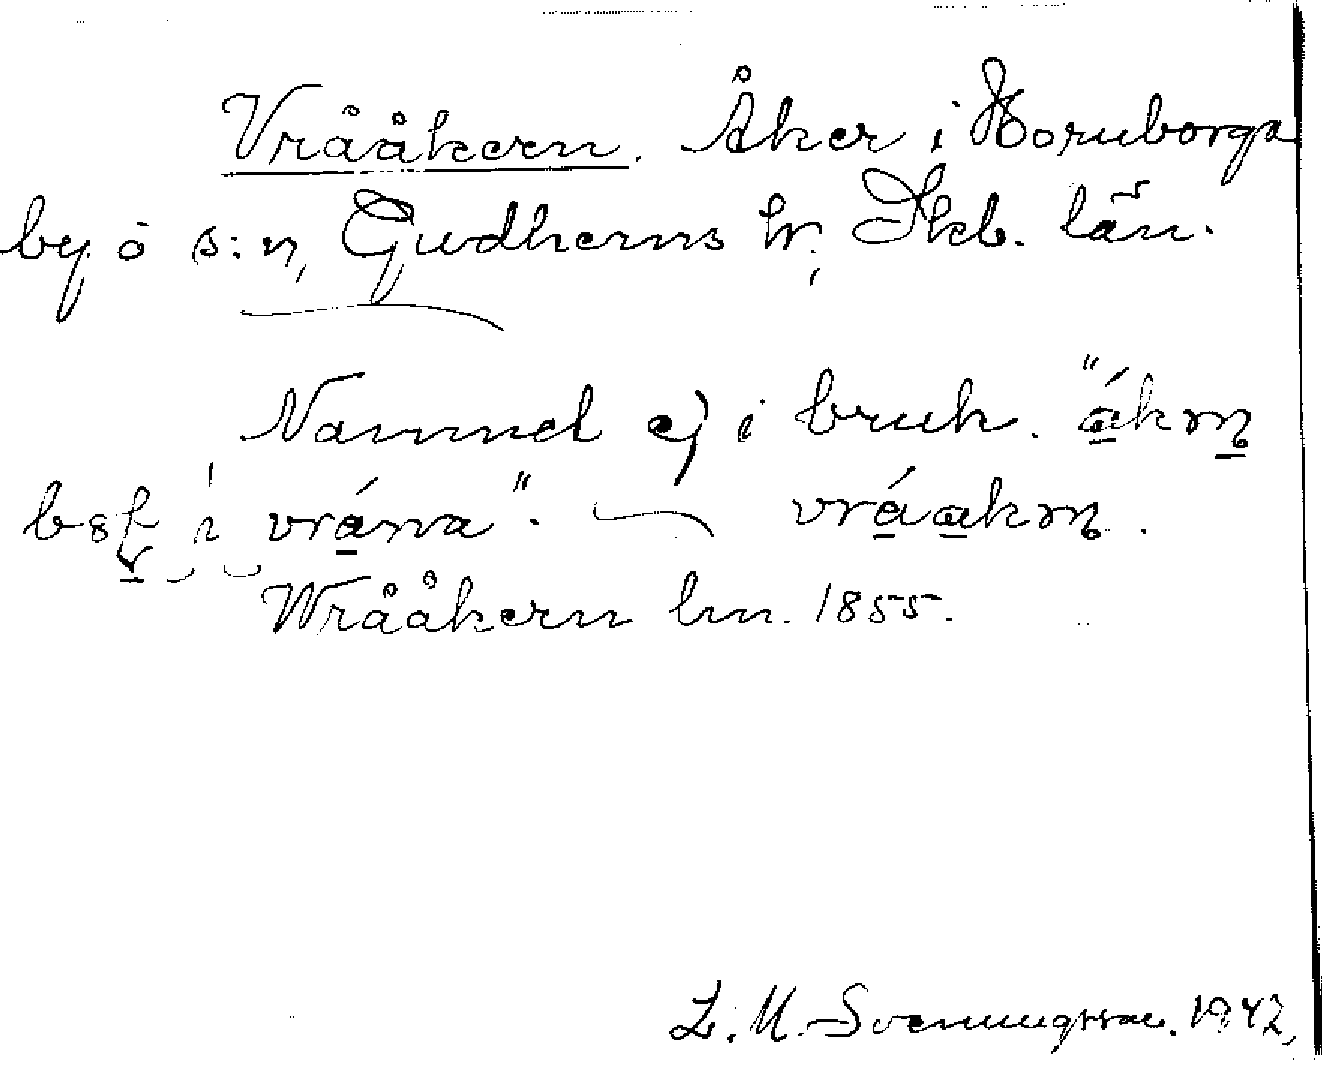 Vrååkern. Åker i Hornborga
by o s:n, Gudhems hr; Skb. län.
Namnet ej i bruk. "ákrn̥
i vrána". vráakrn̥.
Wrååkern lm. 1855.
L. M. Svenungsson. 1942,